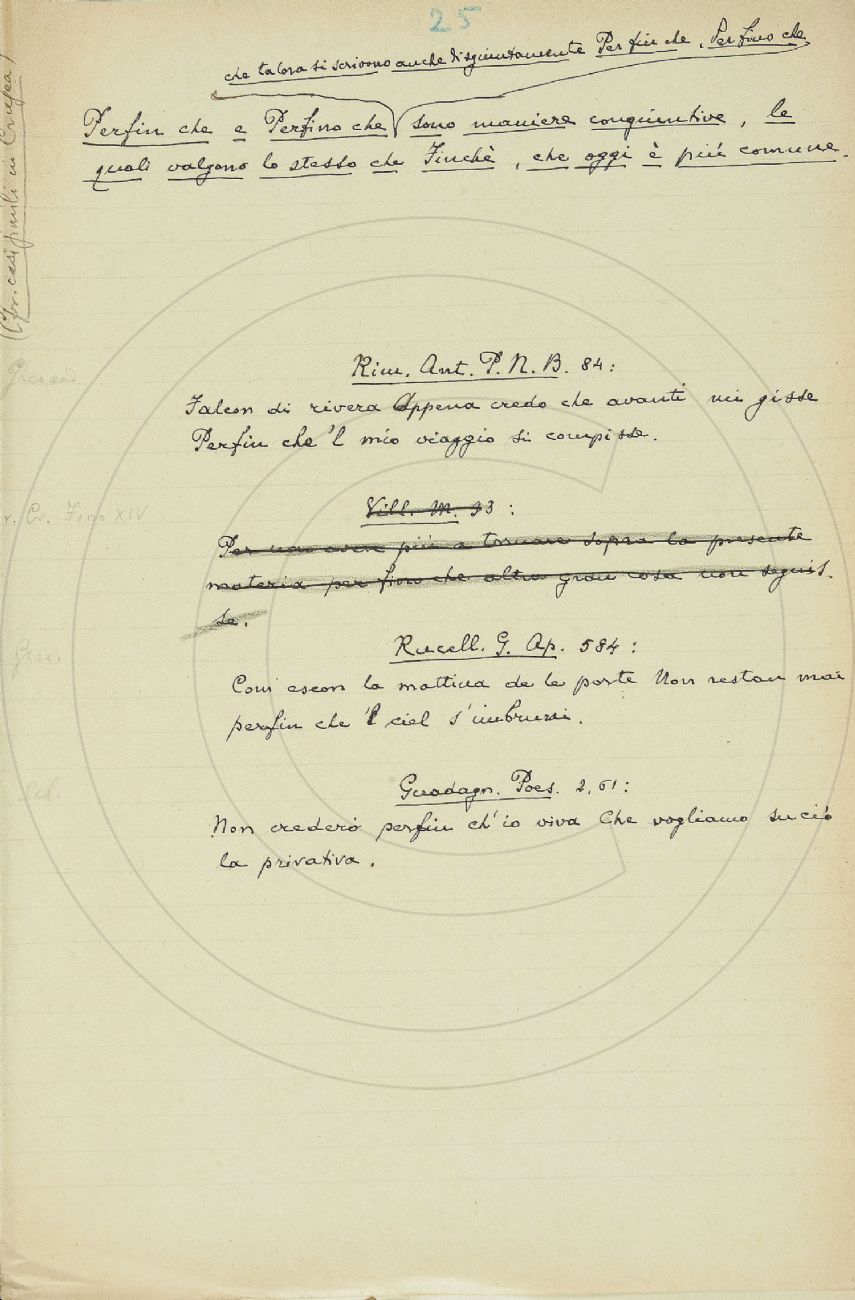 25
che talora si scrivono anche disgiuntamente Per fin che, Per fino che
Perfin che e Perfino che sono maniere congiuntive, le
quali valgono lo stesso che Finchè, che oggi è più comune.
(Cfr. casi simili in Crusca)
Rim. Ant. P. N. B. 84:
Falcon di rivera Appena credo che avanti mi gisse
Perfin che 'l mio viaggio si compisse.
v. Cr. Fino XIV
Vill. M. 93:
Per non avere più a tornare sopra la presente
materia per fino che altra gran cosa non seguis-
se.
Rucell. G. Ap. 584:
Com' escon la mattina de le porte Non restan mai
perfin che 'l ciel s'imbruni.
Guadagn. Poes. 2, 61:
Non crederò perfin ch'io viva Che vogliamo su ciò
la privativa.